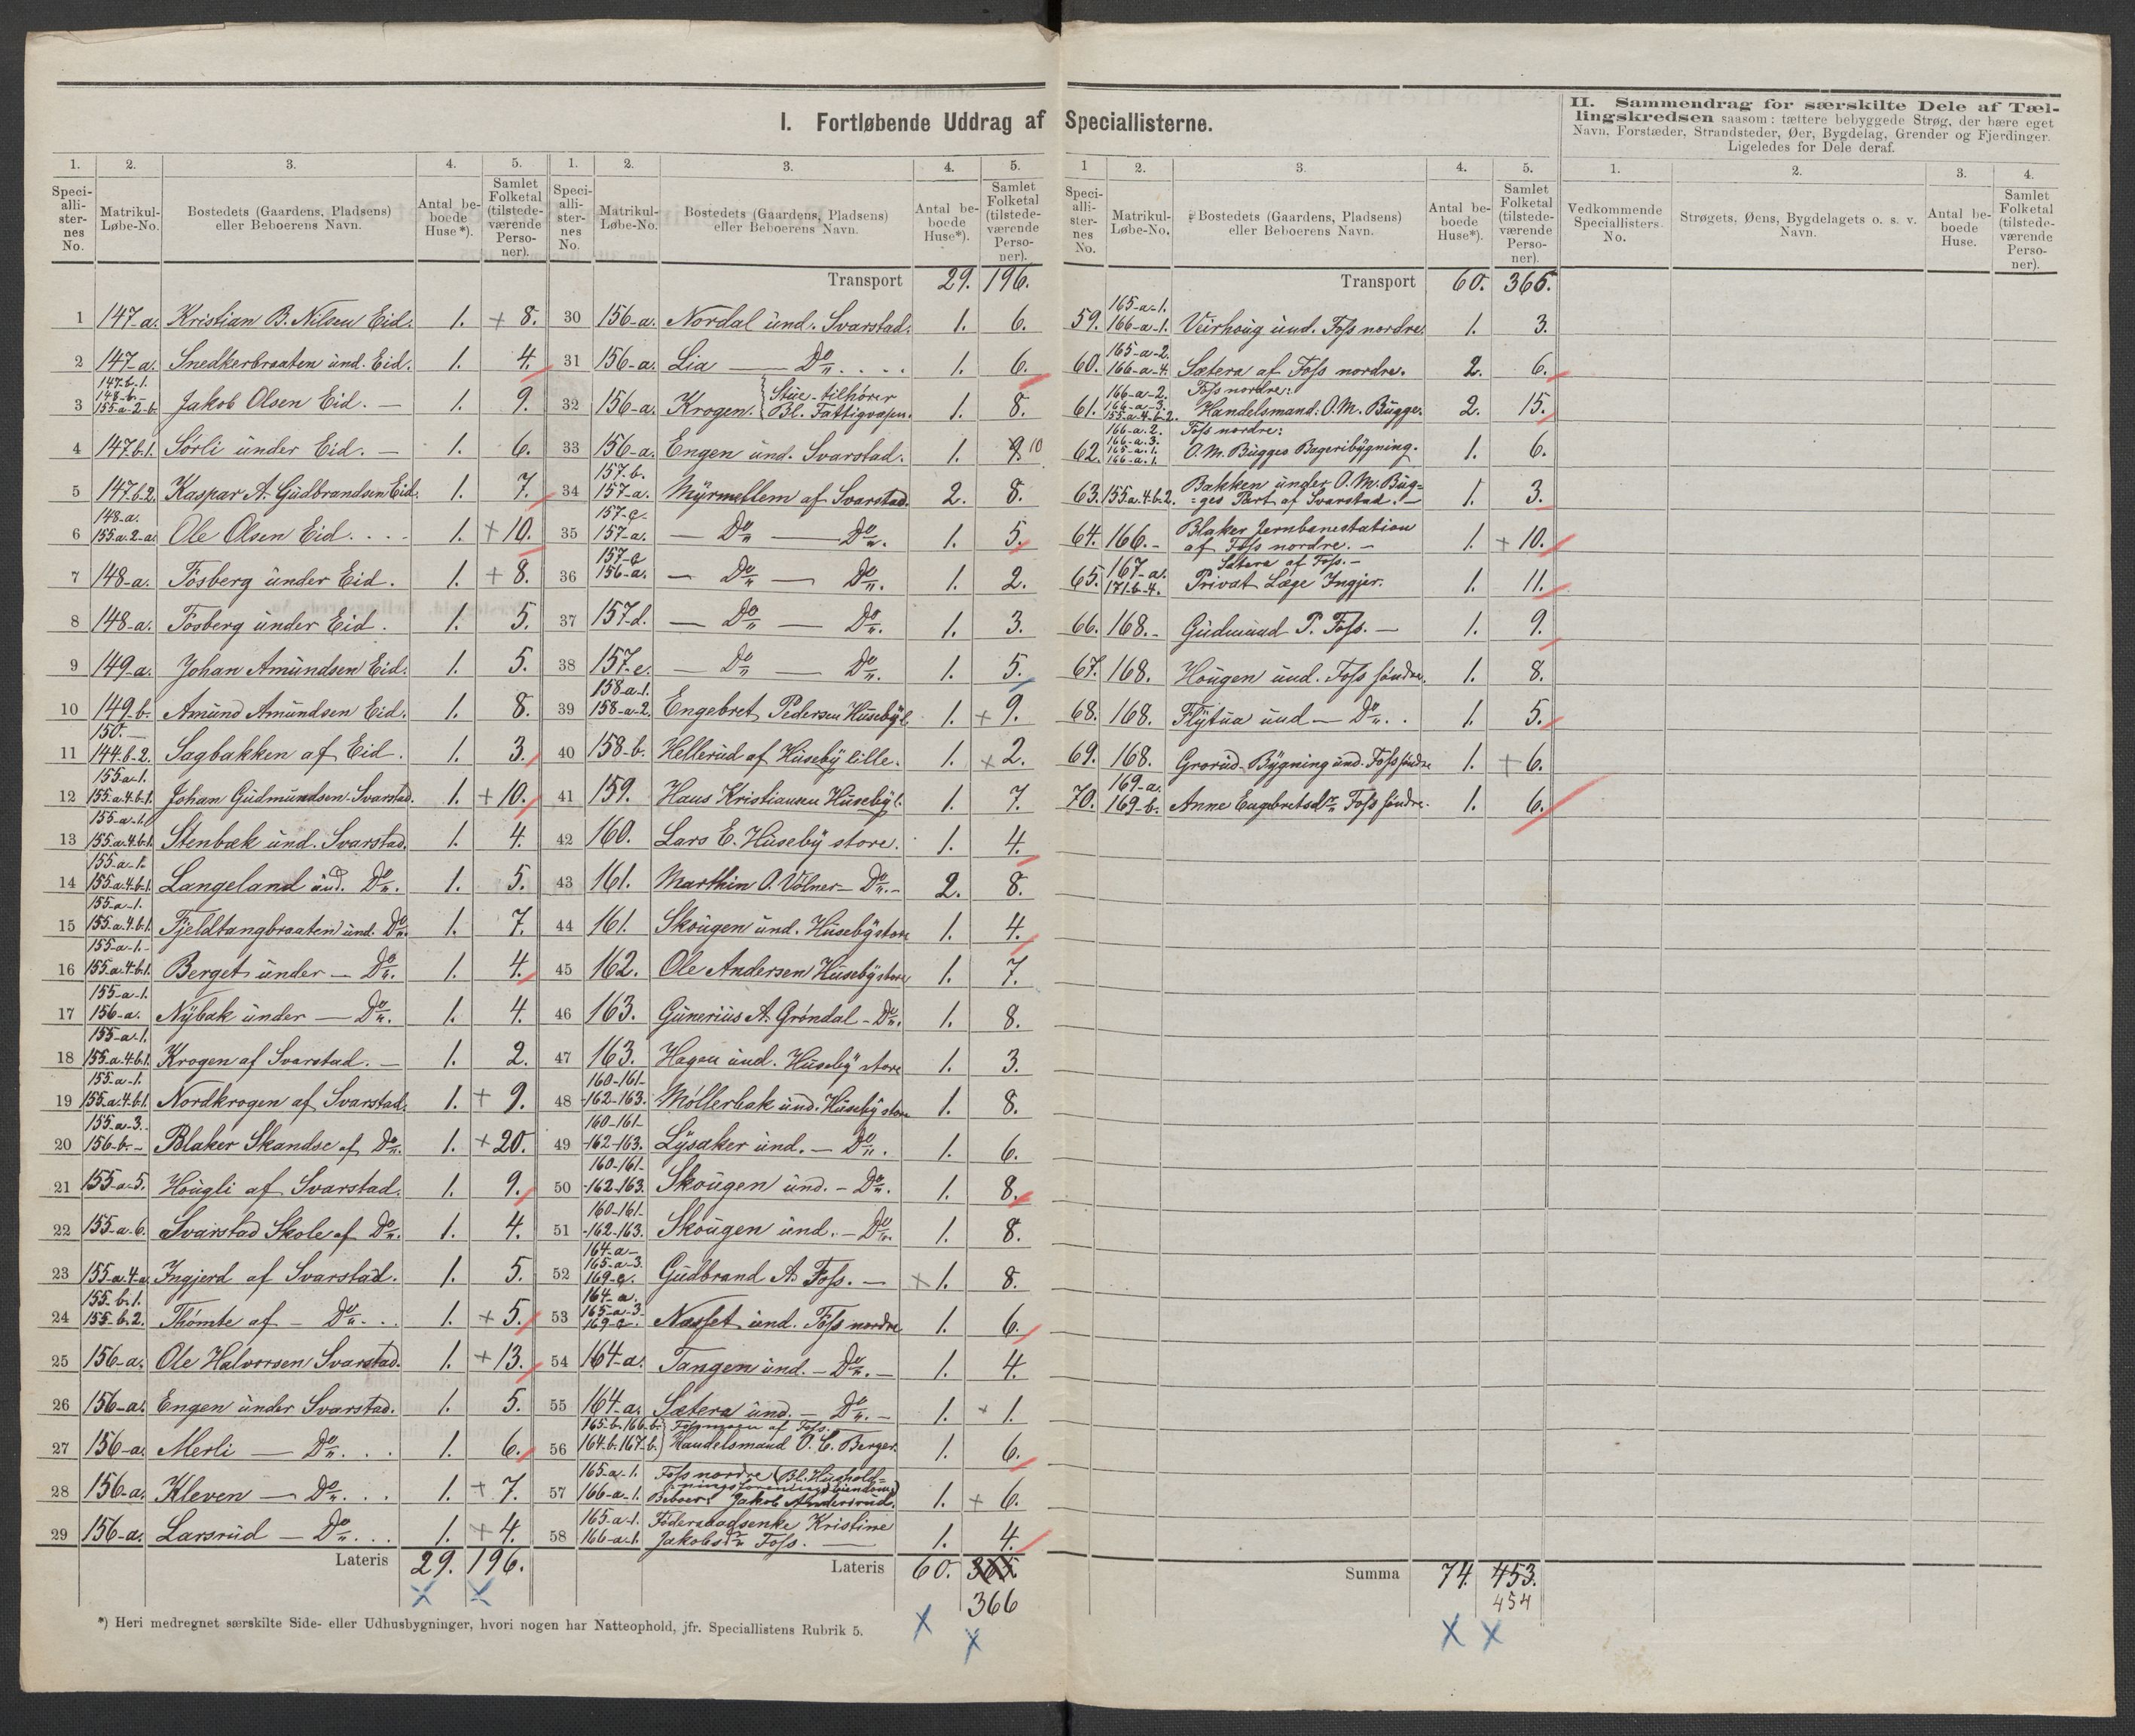 I. Fortløbende Uddrag af Speciallisterne.
1. 2. 3. 4. 5.
Speciallisternes No. Matrikul-Løbe-No. Bostedets (Gaardens, Pladsens) eller Beboerens Navn. Antal beboede Huse*). Samlet Folketal (tilstedeværende Personer).
1 147-a. Kristian B. Nilsen Eid. 1. + 8.
2 147-a. Snedkerbraaten und. Eid. 1. 4.
3 147-b-1. 148-b- 155-a-2-b. Jakob Olsen Eid. — 1. 9.
4 147.b.1. Sørli under Eid. — 1. 6.
5 147.b.2. Kaspar A. Gudbrandsen Eid. 1. 7.
6 148-a. 155.a.2-a. Ole Olsen Eid. . . . 1. + 10.
7 148-a. Fosberg under Eid. 1. + 8.
8 148-a. Fosberg under Eid. 1. 5.
9 149-a. Johan Amundsen Eid. 1. 5.
10 149-b. Amund Amundsen Eid. 1. 8.
11 150.— 144.b-2. Sagbakken af Eid. 1. 3.
12 155-a-1. 155-a.4-b-1. Johan Gudmundsen Svarstad. 1. + 10.
13 155-a-1. 155.a.4.b.1. Stenbæk und. Svarstad. 1. 4.
14 155-a-1. 155-a.4-b-1. Langeland und. Do. 1. 5.
15 155-a-1. 155-a.4.b.1. Fjeldtangbraaten und. Do. 1. 7.
16 155-a-1.- 155-a.4.b.1. Berget under — Do. 1. 4.
17 155-a-1. 156-a. Nybak under — Do. 1. 4.
18 155-a-1. 155-a.4.b.1. Krogen af Svarstad. — 1. 2.
19 155-a-1. 155-a.4-b.1. Nordkrogen af Svarstad. 1. + 9.
20 155-a-3.- 156-b.- Blaker Skandse af Do. 1. + 20.
21 155-a-5. Hougli af Svarstad. 1. 9.
22 155-a-6. Svarstad Skole af Do. 1. 4.
23 155-a.4-a. Ingjerd af Svarstad. 1. 5.
24 155-b.1. 155-b.2. Thømte af — Do. . . 1. + 5.
25 156-a. Ole Halvorsen Svarstad. 1. + 13.
26 156-a. Engen under Svarstad. 1. 5.
27 156-a. Merli — Do. . . 1. 6.
28 156-a. Kleven — Do. . . 1. + 7.
29 156-a. Larsrud — Do. . . 1. + 4.
Lateris 29. 196.
x x
*) Heri medregnet særskilte Side- eller Udhusbygninger, hvori nogen har Natteophold, jfr. Speciallistens Rubrik 5.
1. 2. 3. 4. 5.
Speciallisternes No. Matrikul-Løbe-No. Bostedets (Gaardens, Pladsens) eller Beboerens Navn. Antal beboede Huse*). Samlet Folketal (tilstedeværende Personer).
Transport 29. 196.
30 156-a. Nordal und. Svarstad. 1. 6.
31 156-a. Lia — Do. . . . 1. 6.
32 156-a. Krogen. {Stue tilhører Bl. Fattigvæsen. 1. 8.
33 156-a. Engen und. Svarstad. 1. 9. 10
34 157-b. 157-a. Myrmellem af Svarstad. 2. 8.
35 157-c. 157-a. — Do — Do. 1. 5.
36 157-c 156-a. — Do — Do. 1. 2.
37 157-d. — Do — Do. 1. 3.
38 157-e. — Do — Do. 1. 5.
39 158-a-1. 158-a-2. Engebret Pedersen Huseby l. 1. + 9.
40 158-b. Hellerud af Huseby lille. 1. x 2.
41 159. Hans Kristiansen Huseby l. 1. 7.
42 160. Lars E. Huseby store. 1. 4.
43 161. Marthin O. Volner — Do.- 2. 8.
44 161. Skougen und. Huseby store 1. 4.
45 162. Ole Andersen Huseby store 1. 7.
46 163. Gunerius A. Grøndal - Do. 1. 8.
47 163. Hagen und. Huseby store 1. 3.
48 160-161- -162-163. Møllerbak und. Huseby store 1. 8.
49 160-161- -162-163. Lysaker und. — Do. 1. 6.
50 160-161- -162-163. Skougen und. - Do. 1. 8.
51 160-161- -162-163. Skougen und. - Do. 1. 8.
52 164-a- 165-a-3. 169-c. Gudbrand A. Foss. — x 1. 8.
53 164-a. 165-a-3- 169-c. Næsset und. Foss nordre 1. 6.
54 164-a. Tangen und. - Do. — 1. 4.
55 164-a. Sætera und. — Do. - 1. + 1.
56 165-b. 166-b. 164-b. 167-b.} Fossmoen af Foss. Handelsmand O. C. Berger. 1. 6.
57 165-a-1. 166-a-1. Foss nordre (Bl. Husholdningsforenings eiendom) Beboer: Jakob Andersrud. 1. + 6.
58 165-a-1. 166-a-1. Føderaadsenke Kristine Jakobsdr. Foss. — 1. 4.
Lateris 60. 365.
366
x x
1 2. 3. 4. 5.
Speciallisternes No. Matrikul-Løbe-No. Bostedets (Gaardens, Pladsens) eller Beboerens Navn. Antal beboede Huse*). Samlet Folketal (tilstedeværende Personer).
Transport 60. 365.
59. 165-a-1. 166-a-1. Veirhoug und. Foss nordre. 1. 3.
60. 165-a-2. 166-a-4. Sætera af Foss nordre. 2. 6.
61. 166-a-2. 166-a-3. 155-a-4-b-2. Foss nordre: Handelsmand. O. M. Bugge. 2. 15.
62. 166-a.2. 166-a.3. 165-a.1. 166-a.1. Foss nordre: O. M. Bugges Bageribygning. 1. 6.
63. 155.a.4.b.2. Bakken under O. M. Bug= =ges Part af Svarstad. — 1. 3.
64. 166.- Blaker Jernbanestation af Foss nordre. — 1. + 10.
65. 167-a. 171-b-4. Sætera af Foss.— Privat Læge Ingjer. 1. 11.
66. 168.- Gudmund P. Foss. — 1. 9.
67. 168. Hougen und. Foss søndre. 1. 8.
68. 168. Flytua und — Do. . 1. 5.
69. 168. Grorud-Bygning und. Foss søndre 1. + 6.
70. 169-a. 169-b. Anne Engebretsdr. Foss søndre. 1. 6.
Summa 74. 453.
454
x x
II. Sammendrag for særskilte Dele af Tællingskredsen saasom: tættere bebyggede Strøg, der bære eget Navn, Forstæder, Strandsteder, Øer, Bygdelag, Grender og Fjerdinger. Ligeledes for Dele deraf.
1. 2. 3. 4.
Vedkommende Speciallisters No. Strøgets, Øens, Bygdelagets o. s. v. Navn. Antal beboede Huse. Samlet Folketal (tilstedeværende Personer).